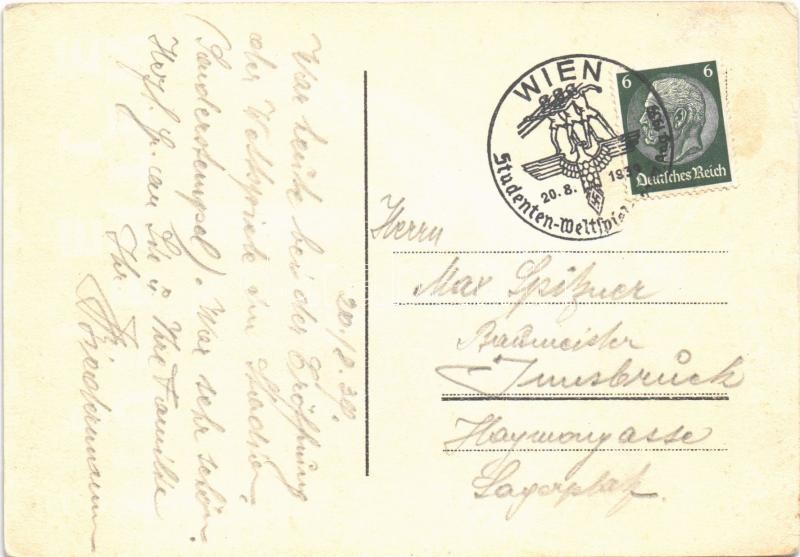 20./8.39.
War heute bei der Eröffnung
der Weltspiele im Stadion
(Sonderstempel). War sehr schön.
Herzl. Gr. an Sie u Ihre Familie
Ihr
Friedemann
WIEN
20.8. 1939
Studenten-Weltspiele
6 6
Deutsches Reich
Herrn
Max Spitzner
Baumeister
Innsbruck
Haymongasse
Lagerplatz.